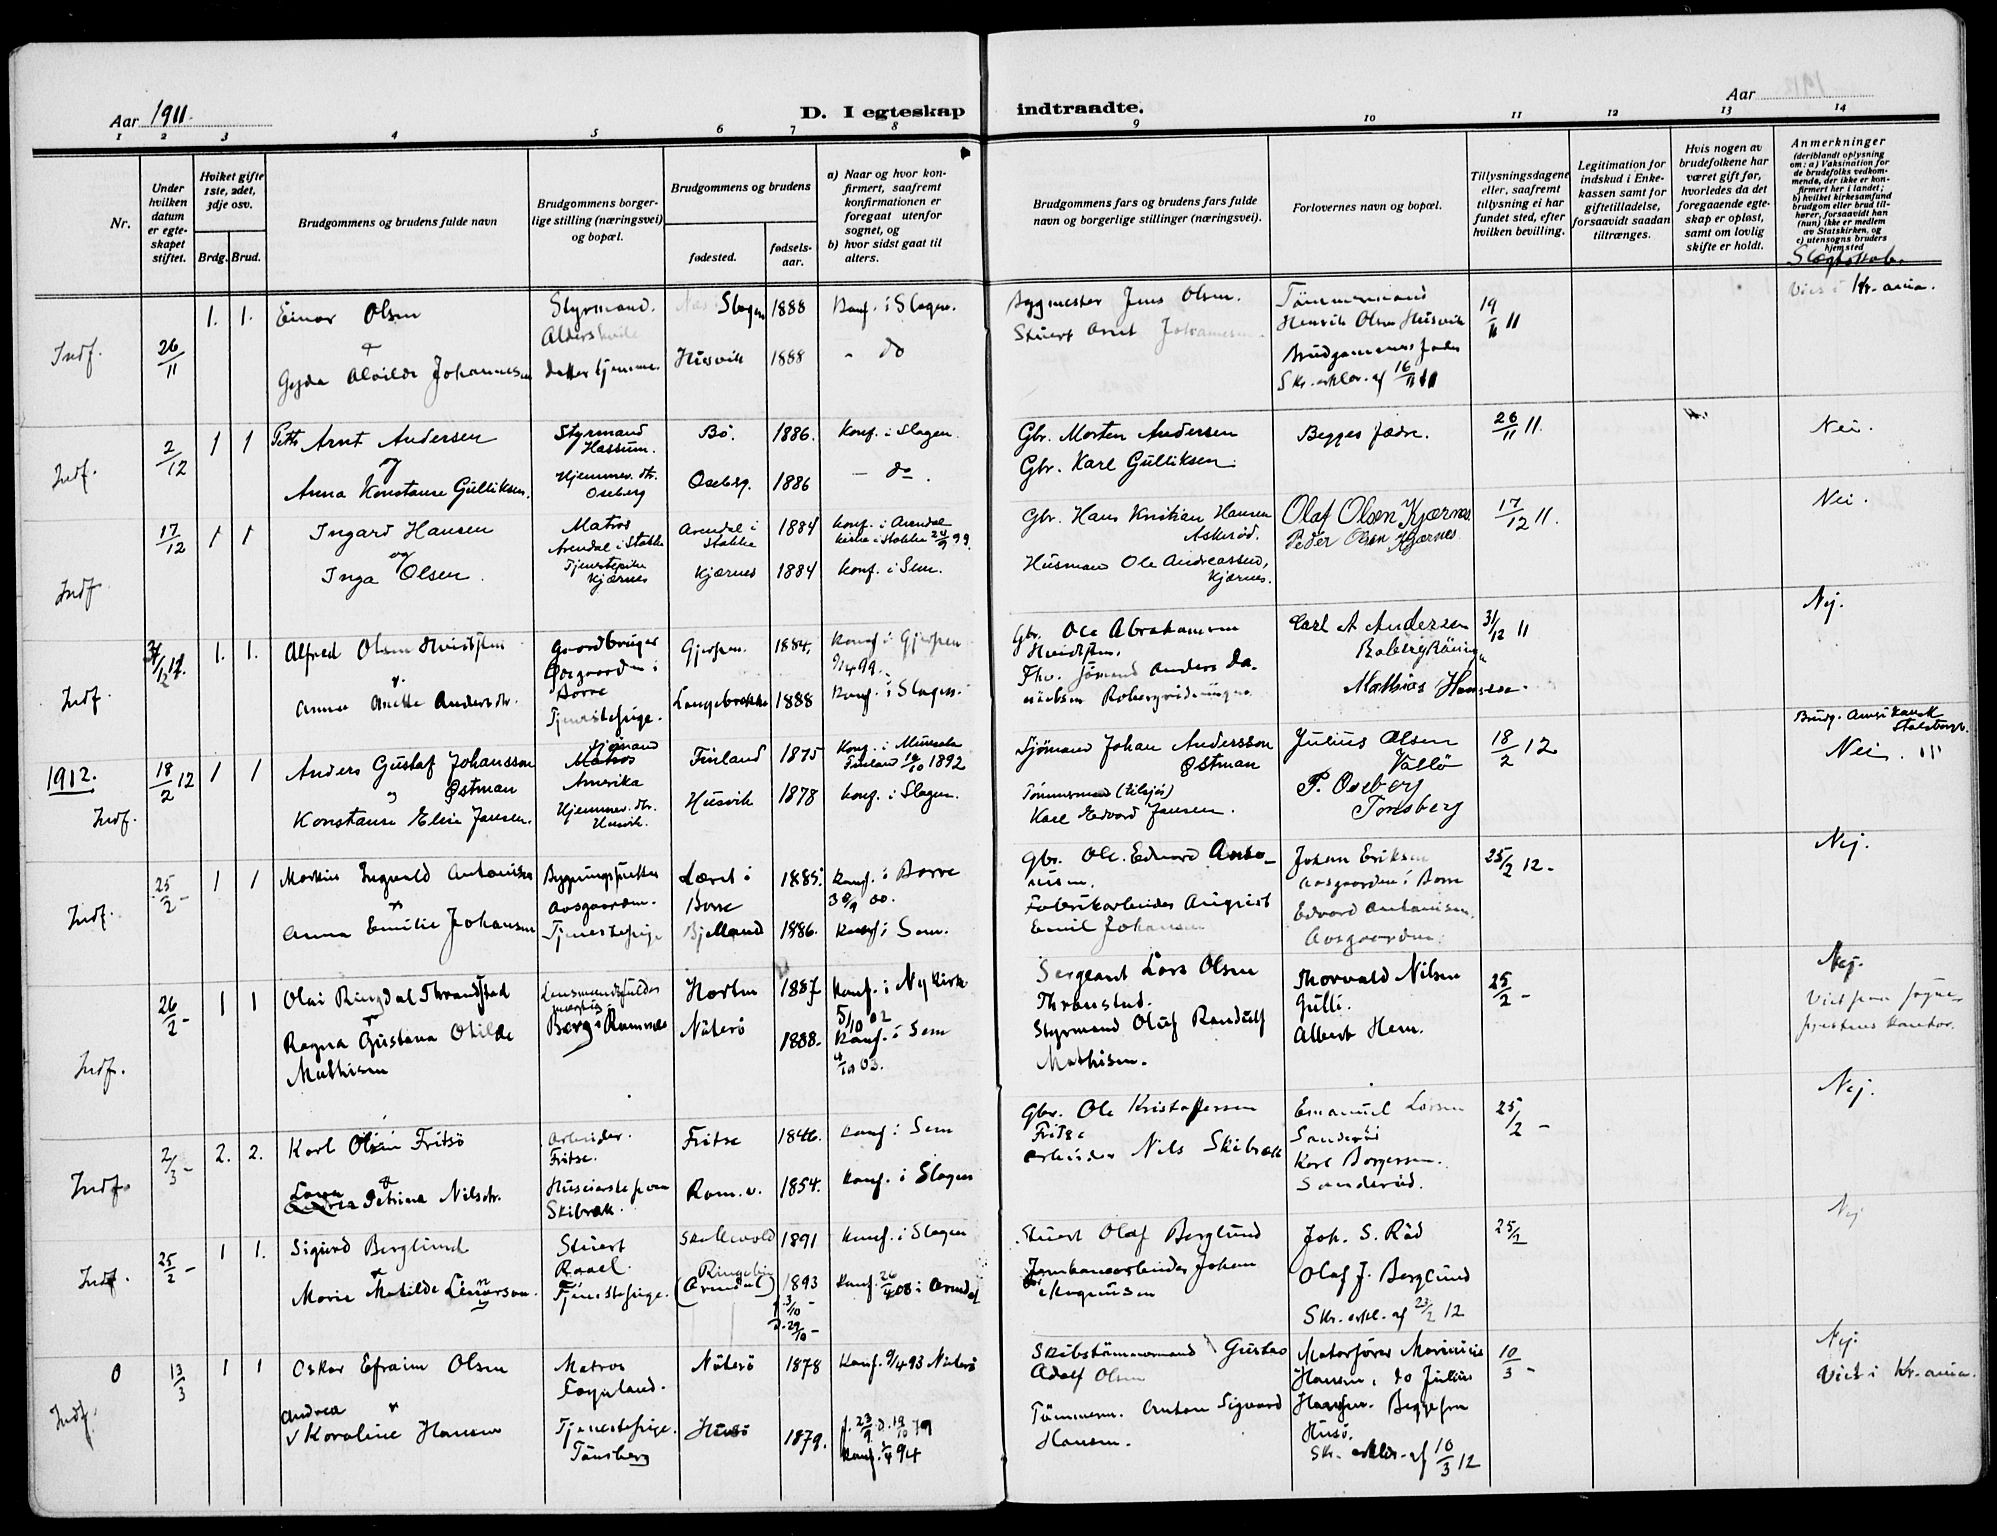 Aar 1911.
D. I egteskap indtraadte.
Aar
1 2 3 4 5 6 7 8 9 10 11 12 13 14
Nr.
Under hvilken datum er egteskapet stiftet.
Hvilket gifte 1ste, 2det, 3dje osv.
Brdg. Brud.
Brudgommens og brudens fulde navn
Brudgommens borgerlige stilling (næringsvei) og bopæl.
Brudgommens og brudens
fødested.
fødselsaar.
a) Naar og hvor konfirmert, saafremt konfirmationen er foregaat utenfor sognet, og
b) hvor sidst gaat til alters.
Brudgommens fars og brudens fars fulde navn og borgerlige stillinger (næringsvei).
Forlovernes navn og bopæl.
Tillysningsdagene eller, saafremt tillysning ei har fundet sted, efter hvilken bevilling.
Legitimation for indskud i Enkekassen samt for giftetilladelse, forsaavidt saadan tiltrænges.
Hvis nogen av brudefolkene har været gift før, hvorledes da det foregaaende egteskap er opløst, samt om lovlig skifte er holdt.
Anmerkninger
(deriblandt oplysning om: a) Vaksination for de brudefolks vedkommende, der ikke er konfirmert her i landet; b) hvilket kirkesamfund brudgom eller brud tilhører, forsaavidt han (hun) ikke er medlem av Statskirken, og c) utensogns bruders hjemsted
Slægtskab.
Indf. 26/11 1. 1. Einar Olsen Styrmand. Slagen 1888 Konf. i Slagen. Bygmester Jens Olsen. Tömmermand Henrik Olsen Husvik 19/11 11 Viet i Kr.ania.
Gyda Alvilde Johannesen datter hjemme. Husvik 1888 - do Stuert Arnt Johannesen. Brudgommens fader
Skr. erklær. af 16/11 11
Indf. 2/12 1 1 Arnt Andersen Styrmand Hassum. Bö. 1886. Konf. i Slagen. Gbr. Morten Andersen Begges fædre. 26/11 11. Nei.
og
Anna Konstanse Gulliksen. Hjemmev. dtr. Oseberg Oseberg. 1886 - do. Gbr. Karl Gulliksen.
Indf. 17/12 1 1 Ingard Hansen Matros Arendal i Stokke Arendal i Stokke 1884 Konf. i Arendal kirke i Stokke 24/9 99. Gbr. Hans Kristian Hansen Askeröd. Olaf Olsen Kjærnes 17/12 11. Nei.
og Peder Olsen Kjærnes
Inga Olsen. Tjenestepike Kjærnes Kjærnes 1884 Konf. i Sem. Husmand Ole Andreassen, Kjærnes.
Indf. 31/12 1. 1. Alfred Olsen Hvidsten Gaardbruger i Borre Gjerpen. 1884. Konf. i Gjerpen 9/4 99. Gbr. Ole Abrahamsen Hvidsten. Carl A Andersen 31/12 11 Nej.
Anna Anette Andersdtr. Tjenestepige. Langebrække 1888 Konf. i Slagen. Anders Danielsen Mathias Hansen.
1912. Indf. 18/2 12 1 1 Anders Gustaf Johansson Østman Sjömand Amerika Finland 1875 Konf. i Finland 16/10 1892 Sjömand Johan Andersson Østman Julius Olsen Vallö 18/2 12 Brudg. Amerikansk Statsborg. Nei.
Konstanse Elise Jansen. Hjemmev. dtr. Husvik. Husvik 1878 Konf. i Slagen. Tömmermand Karl Edvard Jansen. P. Oseberg Tonsberg
Indf. 25/2 - 1 1 Markus Ingvald Antonisen Aasgaarden. i Borre 1885. Konf. i Borre 30/9 00. Gbr. Ole Edvard Antonisen. Johan Eriksen Aasgaarden i Borre 25/2 12. - Nej.
Anna Emilie Johansen Tjenestepige Bjelland 1886. Konf. i Sem. Fabrikarbeider August Emil Johansen Edvard Antonisen. Aasgaarden.
Indf. 26/2 - 1 1 Olai Ringdal Thranstad Lensmandsfuldmægtig Horten 1887 Konf. i Nykirke 5/10 02 Sergeant Lars Olsen Thranstad. Thorvald Nilsen Gulli. 25/2 - Nej.
Ragna Gustava Otilde Mathisen Berg i Ramnes Nöterö 1888. Konf. i Sem 4/10 03. Styrmand Oluf Randulf Mathisen. Albert Hem. Viet paa sognepræstens kontor.
Indf. 2/3 - 2. 2. Karl Olsen Fritsö Arbeider. Fritse. Fritse 1846. Konf. i Sem Gbr. Ole Kristoffersen Fritse Emanuel Larsen Sanderöd 25/2 - Nej.
Lovra Petrine Nilsdtr. Skibræk. Ram.n. 1854. Konf. i Slagen Arbeider Nils Skibræk Karl Borgersen. Sanderöd.
Indf. 25/2 - 1 1. Sigurd Berglund Stuert Rosel. Skallevold 1891 Konf. i Slagen Stuert Olaf Berglund Joh. S. Räd 25/2 Nej
Marie Matilde Tjenestepige. (Arendal) 1893 f. 3/10 - D. 29/10 - Konf. 26/4 08 i Arendal Jernbanearbeider Johan Magnusen Olaf J. Berglund
Skr. erkl. af 23/2 12
Indf. 0 13/3 1 1 Oskar Efraim Olsen Matros Föynland. Nöterö 1878 Konf. 9/4 93 Nöterö Skibstömmermand Gustav Adolf Olsen Motorförer Marinius Hansen, do Julius 10/3 - Nej. Viet i Kr.ania.
Andrea Karoline Hansen Tjenestepige. Tönsberg Husö 1879. f. 23/9 D. 19/10 79 Konf. 1/4 94 Tömmerm. Anton Sigvard Hansen. Hansen. Begge fra Husö.
Skr. erklær. af 10/3 12